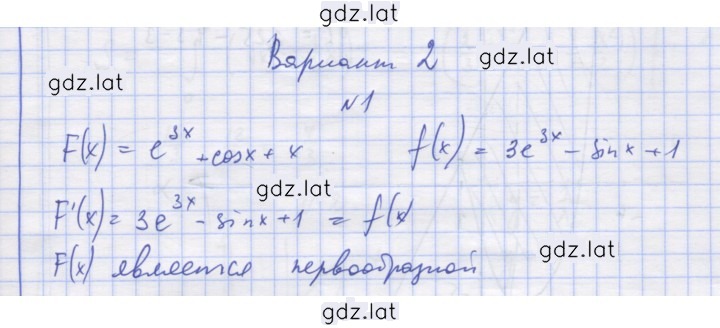 gdz.lat
Вариант 2 gdz.lat
gdz.lat
№1
F(x) = e^{3x} + cosx + x f(x) = 3e^{3x} - sinx + 1
gdz.lat
F'(x) = 3e^{3x} - sinx + 1 = f(x)
F(x) является первообразной gdz.lat
gdz.lat